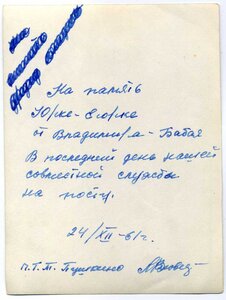 На память
Юрке-Егорке
от Владимира-Бабая
В последний день нашей
совместной службы
на посту.
24/XII-61г.
п.г.т. Пушкино